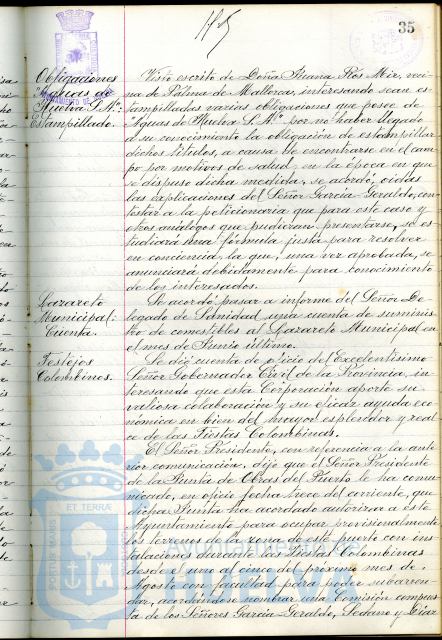 35
Obligaciones
"Aguas de
Huelva S.A.":
Estampillado.
Visto escrito de Doña Juana Ros Mir, veci-
na de Palma de Mallorca, interesando sean es-
tampilladas varias obligaciones que posee de
"Aguas de Huelva S.A." por no haber llegado
a su conocimiento la obligación de estampillar
dichos títulos, a causa de encontrarse en el cam-
po por motivos de salud en la época en que
se dispuso dicha medida, se acordó, oídas
las explicaciones del Señor García-Geraldo, con-
testar a la peticionaria que para este caso y
otros análogos que pudieran presentarse, se es-
tudiará una fórmula justa para resolver
en conciencia, la que, una vez aprobada, se
anunciará debidamente para conocimiento
de los interesados.
Lazareto
Municipal:
Cuenta.
Se acordó pasar a informe del Señor De-
legado de Sanidad, una cuenta de suminis-
tro de comestibles al Lazareto Municipal en
el mes de Junio último.
Festejos
Colombinos.
Se dió cuenta de oficio del Excelentísimo
Señor Gobernador Civil de la Provincia, in-
teresando que esta Corporación aporte su
valiosa colaboración y su eficaz ayuda eco-
nómica en bien del mayor esplendor y real-
ce de las Fiestas Colombinas.
El Señor Presidente, con referencia a la ante-
rior comunicación, dijo que el Señor Presidente
de la Junta de Obras del Puerto le ha comu-
nicado, en oficio fecha trece del corriente, que
dicha Junta ha acordado autorizar a este
Ayuntamiento para ocupar provisionalmente
los terrenos de la zona de este puerto con ins-
talaciones durante las Fiestas Colombinas
desde el uno al cinco del próximo mes de
Agosto con facultad para poder subarren-
dar, acordándose nombrar una Comisión compues-
ta de los Señores García-Geraldo, Sedano y Díaz
PORTUS MARIS ET TERRAE CUSTODIA